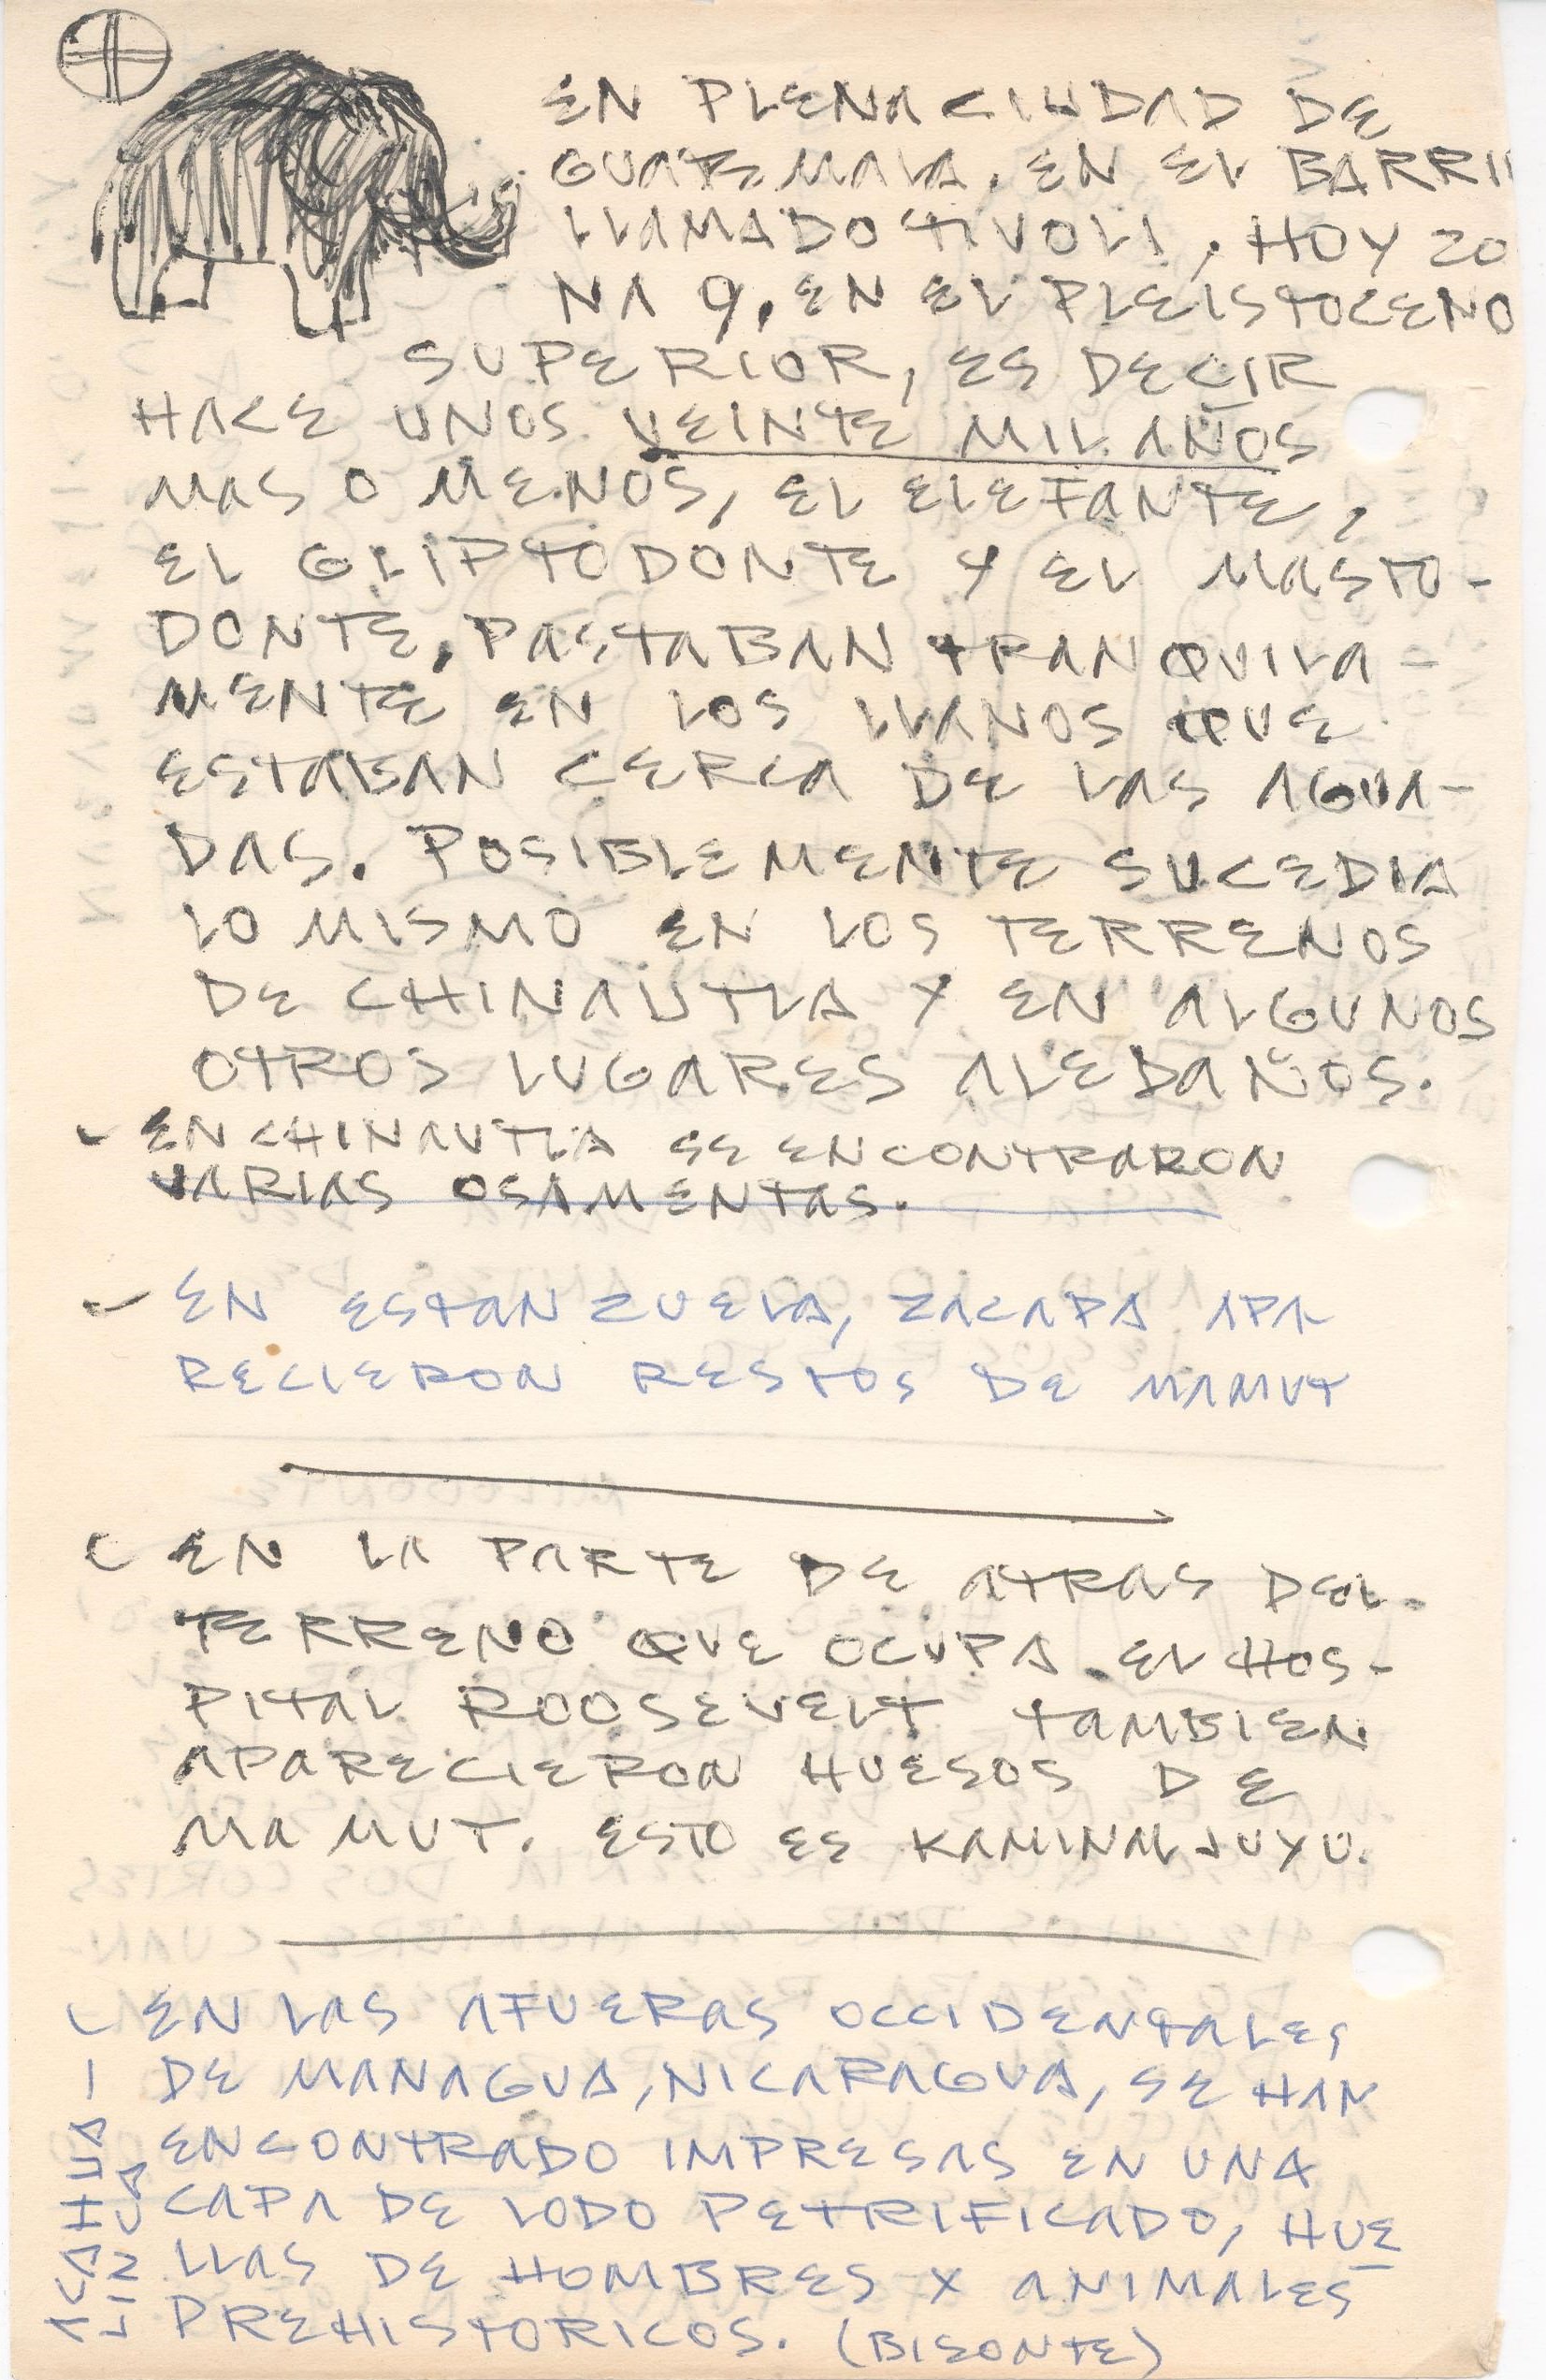 EN PLENA CIUDAD DE
GUATEMALA, EN EL BARRI
LLAMADO TIVOLI, HOY ZO
NA 9, EN EL PLEISTOCENO
SUPERIOR, ES DECIR
HACE UNOS VEINTE MIL AÑOS
MAS O MENOS, EL ELEFANTE,
EL GLIPTODONTE Y EL MASTO-
DONTE, PASTABAN TRANQUILA-
MENTE EN LOS LLANOS QUE
ESTABAN CERCA DE LAS AGUA-
DAS. POSIBLEMENTE SUCEDIA
LO MISMO EN LOS TERRENOS
DE CHINAUTLA Y EN ALGUNOS
OTROS LUGARES ALEDAÑOS.
EN CHINAUTLA SE ENCONTRARON
VARIAS OSAMENTAS.
EN ESTANZUELA, ZACAPA APA-
RECIERON RESTOS DE MAMUT
EN LA PARTE DE ATRAS DEL
TERRENO QUE OCUPA EL HOS-
PITAL ROOSEVELT TAMBIEN
APARECIERON HUESOS DE
MAMUT. ESTO ES KAMINALJUYU.
EN LAS AFUERAS OCCIDENTALES
DE MANAGUA, NICARAGUA, SE HAN
ENCONTRADO IMPRESAS EN UNA
CAPA DE LODO PETRIFICADO, HUE
LLAS DE HOMBRES Y ANIMALES
PREHISTORICOS. (BISONTE)
ACAHUA-
LINCA